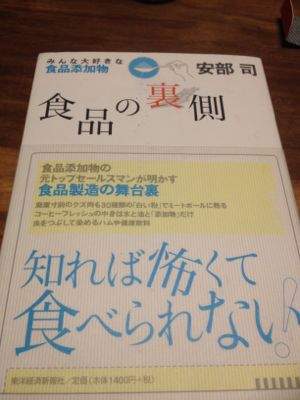 みんな大好きな
食品添加物
安部 司
食品の裏側
食品添加物の
元トップセールスマンが明かす
食品製造の舞台裏
廃棄寸前のクズ肉も30種類の「白い粉」でミートボールに甦る
コーヒーフレッシュの中身は水と油と「添加物」だけ
虫をつぶして染めるハムや健康飲料
知れば怖くて
食べられない!
東洋経済新報社/定価(本体1400円+税)